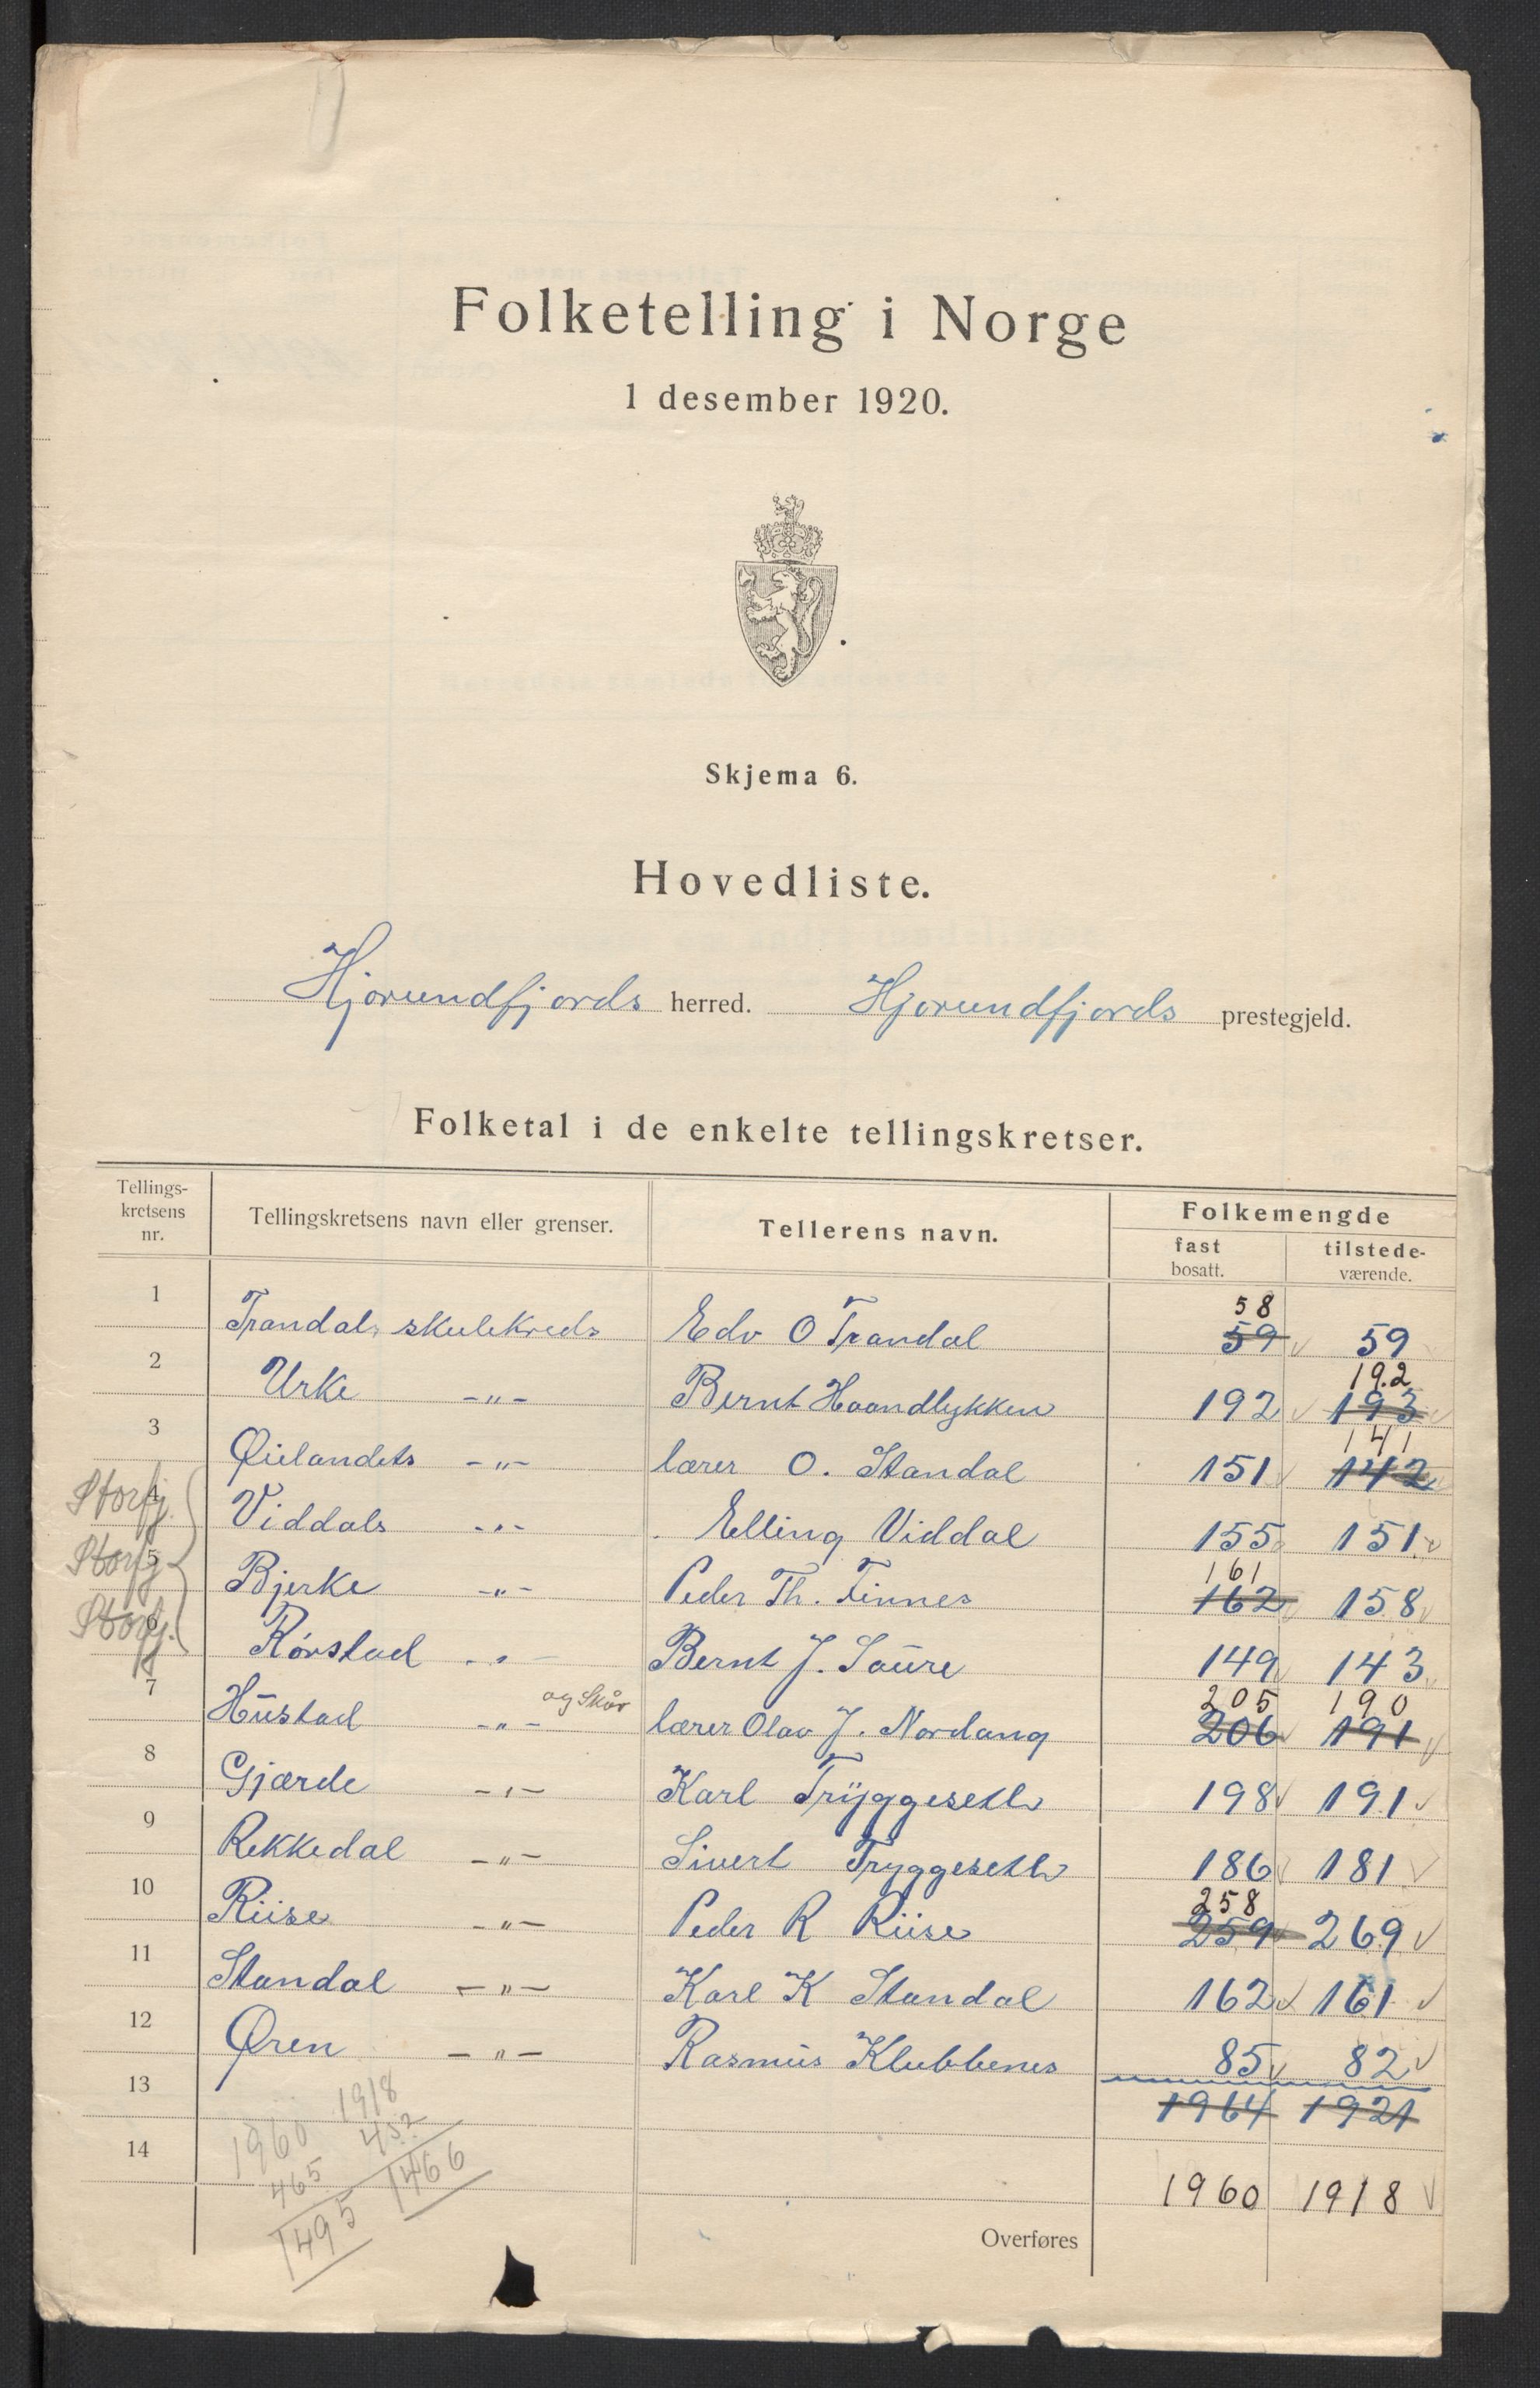 Folketelling i Norge
1 desember 1920.
Skjema 6.
Hovedliste.
Hjorundfjords herred. Hjorundfjords prestegjeld.
Folketal i de enkelte tellingskretser.
Tellings-
kretsens
nr.
Tellingskretsens navn eller grenser.
Tellerens navn.
Folkemengde
fast
bosatt.
tilstede-
værende.
58
1 Trandals skulekreds Edv O Trandal 59 59
19.2
2 Urke -"- Bernt Haandlykken 192 193
141
3 Øielandets -"- lærer O. Standal 151 142
Storfj. 4 Viddals -"- Elling Viddal 155 151
161
Storfj 5 Bjerke -"- Peder Th. Finnes 162 158
Storfj. 6 Rörstad -"- Bernt J. Saure 149 143
og Skår 205 190
7 Hustad -"- lærer Olav J. Nordang 206 191
8 Gjærde -"- Karl Tryggeseth 198 191
9 Rekkedal -"- Sivert Tryggeseth 186 181
258
10 Riise -"- Peder R Riise 259 269
11 Standal -"- Karl K Standal 162 161
12 Øren -"- Rasmus Klubbenes 85 82
13 1964 1921
14 1960 1918
1960 1918
465 452
1495 1466
Overføres